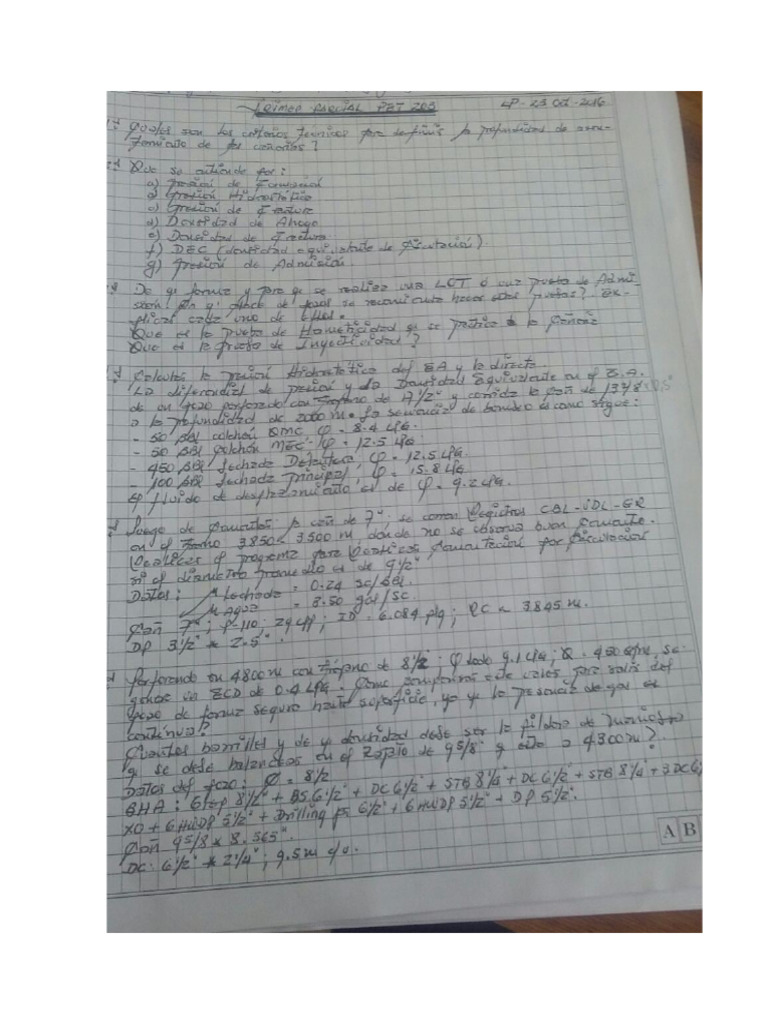 Primer Parcial PET 203 LP-23 Oct-2016
1.- Cuales son los criterios tecnicos para definir la profundidad de asen-
tamiento de las cañerias?
Que se entiende por:
a) Presion de Formacion
b) Presion Hidrostática
c) Presion de Fractura
d) Densidad de Ahogo
e) Densidad de Fractura
f) DEC (densidad equivalente de Circulacion)
g) Presion de Admision
De q' forma y para q' se realiza una LOT ó una prueba de Admi-
sion. En q' clase de pozos se recomienda hacer estas pruebas? Ex-
plicar cada uno de ellos.
Que es la prueba de Hermeticidad q' se practica a la Cañeria
Que es la Prueba de Inyectividad?
Calcular la presion Hidrostática del EA y la directa
La diferencial de presion y la Densidad Equivalente en el E.A.
de un pozo perforado con trepano de 17 1/2" y corrida la Cañ de 13 3/8"
a la profundidad de 2000 m. La secuencia de bombeo es como sigue:
- 50 Bbl colchón QMC φ = 8.4 LPG.
- 50 Bbl Colchón MEC φ = 12.5 LPG.
- 450 Bbl Lechada Delantera, φ = 12.5 LPG.
- 100 Bbl Lechada Principal, φ = 15.8 LPG
El fluido de desplazamiento es de φ = 9.2 LPG.
Luego de Cementar la cañ de 7" se corren Registros CBL-VDL-GR
en el tramo 3850 - 3500 m, donde no se observa buen Cemento.
Realizar el programa para Cementacion por Circulacion
si el diametro promedio es de 9 1/2"
Datos: μ Lechada = 0.24 sc/Bbl.
μ Agua = 3.50 gal/sc.
Cañ 7"; P-110; 29 lpp; ID = 6.084 plg; RC = 3845 m.
DP 3 1/2" * 2.5".
Perforando en 4800 m con trepano de 8 1/2"; φ lodo 9.1 LPG; Q = 450 gpm, se
genera un ECD de 0.4 LPG. Como compensaria este valor para salir del
pozo de forma segura hasta superficie, ya q' la presencia de gas es
continua?
Cuantos barriles y de q' densidad debe ser la pildora
q' se debe balancear en el Zapato de 9 5/8" q' esta a 4300 m?
Datos del pozo: Ø = 8 1/2
BHA: Trep 8 1/2" + BS 6 1/2" + DC 6 1/2" + STB 8 1/4" + DC 6 1/2" + STB 8 1/4 + 3 DC 6
XO + 6 HWDP 5 1/2" + Drilling js 6 1/2" + 6 HWDP 5 1/2" + DP 5 1/2".
Cañ 9 5/8 * 8.565".
DC: 6 1/2" * 2 1/4"; 9.5 m c/u.
AB